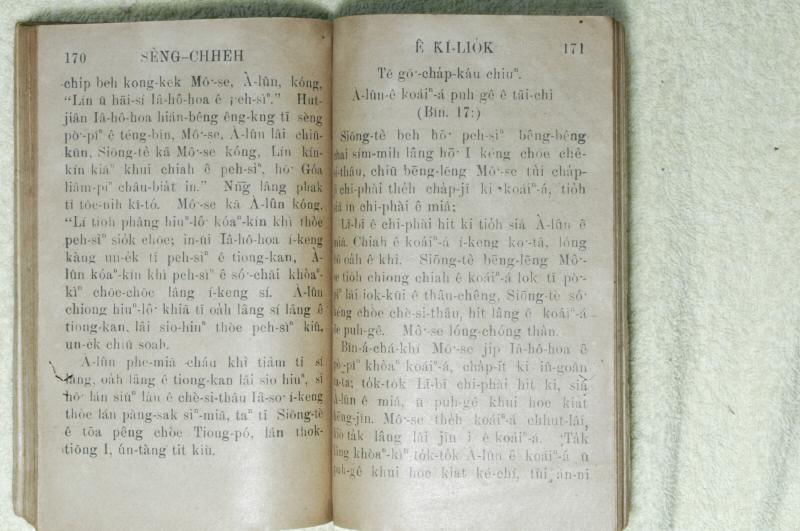 170 SÈNG-CHHEH
chip beh kong-kek Mô͘-se, À-lûn, kóng,
“Lín ū hāi-sí Iâ-hô-hoa ê peh-sìⁿ.” Hut-
jiân Iâ-hô-hoa hián-bêng êng-kng tī sèng
pò͘-pîⁿ ê téng-bīn, Mô͘-se, À-lûn lâi chiū-
kūn, Siōng-tè kā Mô͘-se kóng, Lín kín-
kín kiâⁿ khui chiah ê peh-sìⁿ, hō͘ Góa
liâm-piⁿ châu-bia̍t in.” Nn̄g lâng phak
tī tôe-nih kî-tó. Mô͘-se kā À-lûn kóng,
“Lí tio̍h phâng hiuⁿ-lô͘ kóaⁿ-kín khì thòe
peh-sìⁿ sio̍k chōe; in-ūi Iâ-hô-hoa í-keng
kàng un-e̍k tī peh-sìⁿ ê tiong-kan, À-
lûn kóaⁿ-kín khì peh-sìⁿ ê só͘-chāi khòaⁿ-
kìⁿ chōe-chōe lâng í-keng sí. À-lûn
chiong hiuⁿ-lô͘ khiā tī oa̍h lâng sí lâng ê
tiong-kan, lâi sio-hiuⁿ thòe peh-sìⁿ kiû,
un-e̍k chiū soah.
À-lûn phe-miā cháu khì tiàm tī sí
lâng, oa̍h lâng ê tiong-kan lâi sio hiuⁿ, sī
hō͘ lán siūⁿ lán ê chè-si-thâu Iâ-so͘ í-keng
thòe lán pàng-sak sìⁿ-miā, taⁿ tī Siōng-tè
ê tōa pêng chòe Tiong-pó, lán thok-
tiōng I, ún-tàng tit kiù.
Ê KÌ-LIO̍K 171
Tē gō͘-cha̍p-káu chiuⁿ.
À-lûn-ê koáiⁿ-á puh gê ê tāi-chì
(Bîn. 17:)
Siōng-tè beh hō͘ peh-sìⁿ bêng-bêng
chai sím-mih lâng hō͘ I kéng chòe chè-
si-thâu, chiū bēng-lēng Mô͘-se tùi cha̍p-
jī chi-phài the̍h cha̍p-jī ki koáiⁿ-á, tio̍h
siá in chi-phài ê miâ;
Lī-bī ê chi-phài hit ki tio̍h siá À-lûn ê
miâ. Chiah ê koáiⁿ-á í-keng ko͘-tâ, lóng
bô oa̍h ê khì. Siōng-tè bēng-lēng Mô͘-
se tio̍h chiong chiah ê koáiⁿ-á lok tī pò͘-
pîⁿ lāi iok-kūi ê thâu-chêng, Siōng-tè só͘
kéng chòe chè-si-thâu, hit lâng ê koáiⁿ-á
ōe puh-gê. Mô͘-se lóng-chóng thàn.
Bîn-á-chá-khí Mô͘-se ji̍p Iâ-hô-hoa ê
pò͘-pîⁿ khòaⁿ koáiⁿ-á, cha̍p-it ki iû-goân
ta-ta; to̍k-to̍k Lī-bī chi-phài hit ki, siá
À-lûn ê miâ, ū puh-gê khui hoe kiat
hēng-jîn. Mô͘-se the̍h koáiⁿ-á chhut-lâi,
kiò ta̍k lâng lâi jīn i ê koáiⁿ-á. Ta̍k
lâng khòaⁿ-kìⁿ to̍k-to̍k À-lûn ê koáiⁿ-á ū
puh-gê khui hoe kiat ké-chí, tùi án-ni